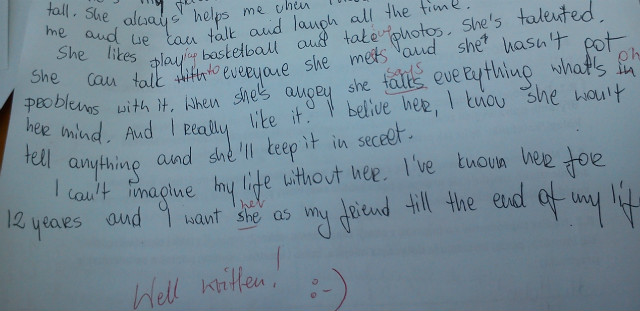 tall. She always helps me when
me and we can talk and laugh all the time.
She likes playing basketball and takeing photos. She's talented.
She can talk with to everyone she mets and she hasn't got
problems with it. When she's angry she talks says everything what's in on
her mind. And I really like it. I belive her, I know she won't
tell anything and she'll keep it in secret.
I can't imagine my life without her. I've known her for
12 years and I want she her as my friend till the end of my life
Well written! :-)